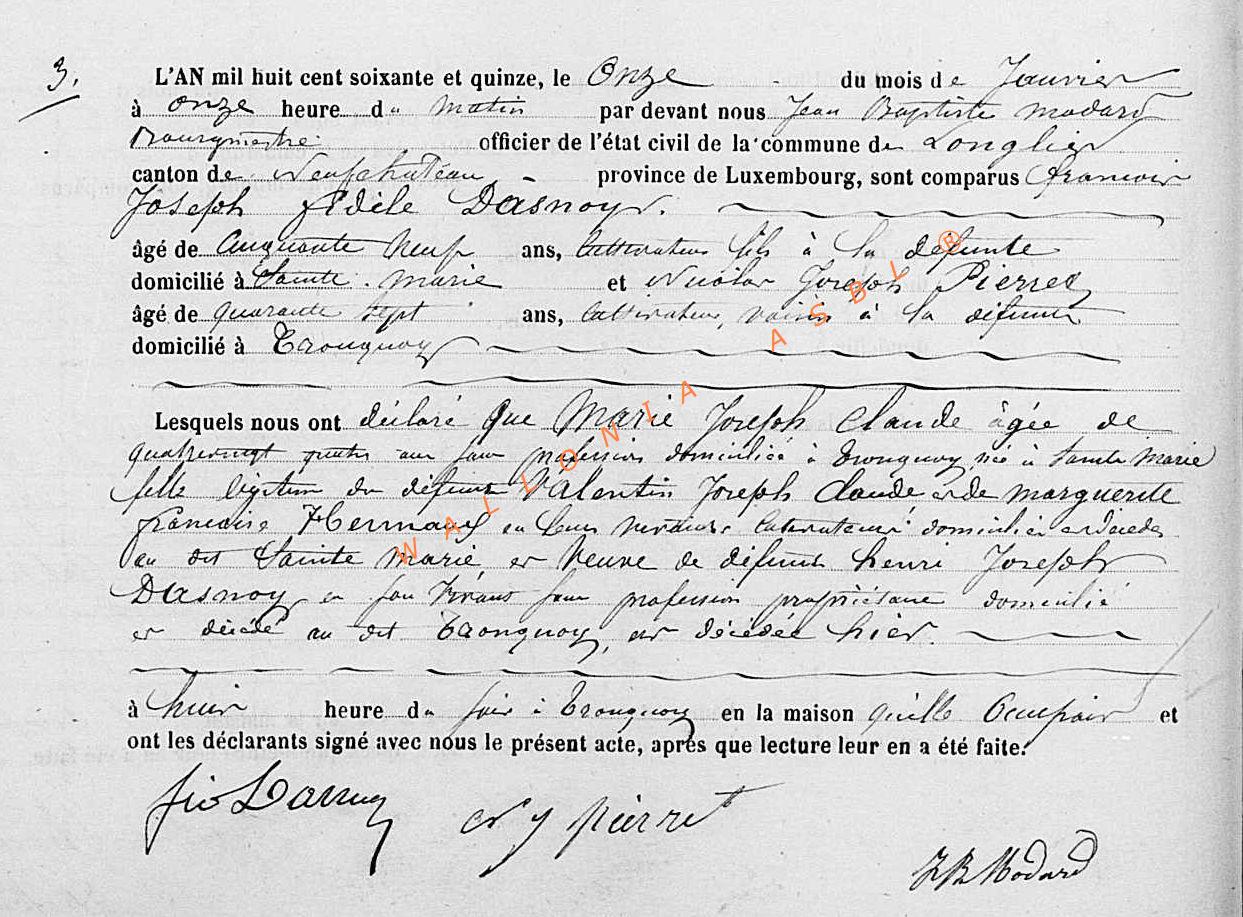 3.
L'AN mil huit cent soixante et quinze, le Onze du mois de Janvier
à onze heure du matin par devant nous Jean Baptiste Modard
Bourgmestre officier de l'état civil de la commune de Longlier
canton de Neufchateau province de Luxembourg, sont comparus francois
Joseph fidèle Dasnoy.
âgé de Cinquante Neuf ans, Cultivateur fils à la défunte
domicilié à Sainte marie et Nicolas Joseph Pierret
âgé de quarante Sept ans, Cultivateur, voisin à la défunte
domicilié à Tronquoy
Lesquels nous ont déclaré que Marie Joseph Claude âgée de
quatrevingt quatre ans sans profession domiciliée à Tronquoy née à Sainte Marie
fille légitime du défunt Valentin Joseph Claude et de marguerite
francoise en Leurs vivants Cultivateurs domiciliés et décédés
au dit Sainte Marie et Veuve de défunt henri Joseph
Dasnoy en son Vivant sans profession propriétaire domicilié
et décédé au dit Tronquoy, est décédée hier.
à huit heure du soir à Tronquoy en la maison qu'elle Occupait et
ont les déclarants signé avec nous le présent acte, après que lecture leur en a été faite.
Dasnoy pierret
J B Modard
WALLONIA ASBL ®